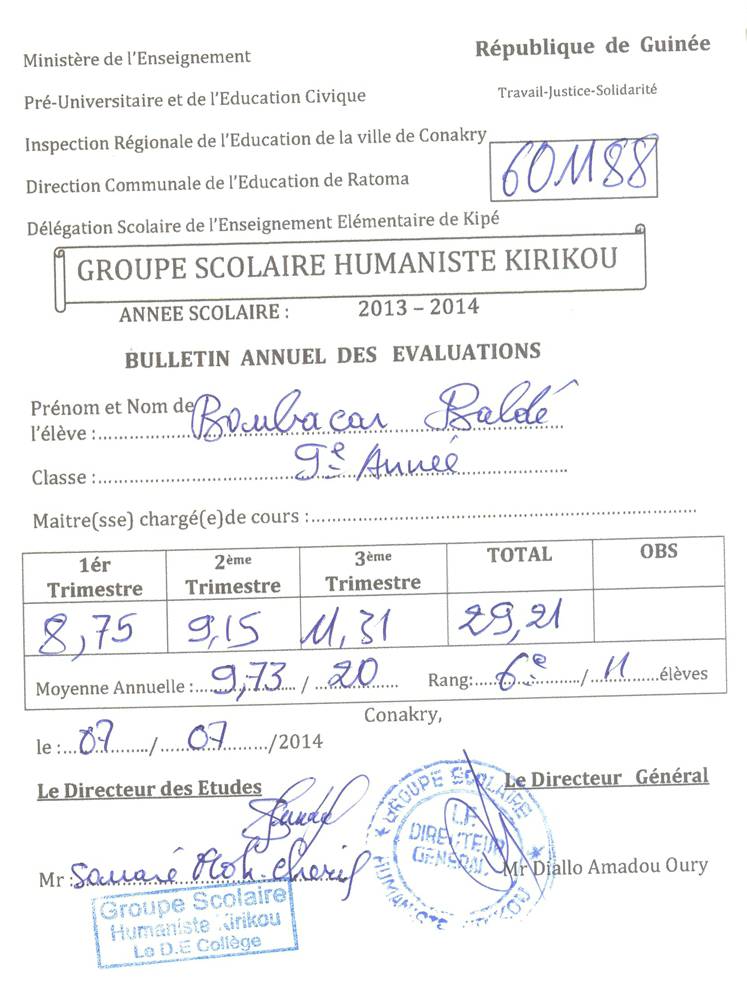 Ministère de l'Enseignement
République de Guinée
Pré-Universitaire et de l'Education Civique
Travail-Justice-Solidarité
Inspection Régionale de l'Education de la ville de Conakry
601188
Direction Communale de l'Education de Ratoma
Délégation Scolaire de l'Enseignement Elémentaire de Kipé
GROUPE SCOLAIRE HUMANISTE KIRIKOU
ANNEE SCOLAIRE : 2013 – 2014
BULLETIN ANNUEL DES EVALUATIONS
Prénom et Nom de
l'élève : Boubacar Baldé
Classe : 9e Année
Maitre(sse) chargé(e)de cours :
1ér Trimestre 2ème Trimestre 3ème Trimestre TOTAL OBS
8,75 9,15 11,31 29,21
Moyenne Annuelle : 9,73 / 20 Rang: 6e / 11 élèves
Conakry,
le : 07 / 07 /2014
Le Directeur des Etudes
Le Directeur Général
GROUPE SCOLAIRE
LE
DIRECTEUR
GENERAL
HUMANISTE KIRIKOU
Mr : Sanaré Moh. Cherif
Mr Diallo Amadou Oury
Groupe Scolaire
Humaniste Kirikou
Le D.E Collège